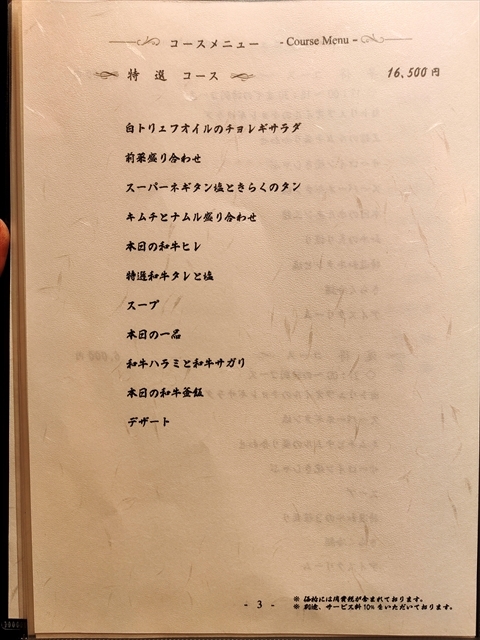 コースメニュー - Course Menu -
特選 コース 16,500円
白トリュフオイルのチョレギサラダ
前菜盛り合わせ
スーパーネギタン塩ときらくのタン
キムチとナムル盛り合わせ
本日の和牛ヒレ
特選和牛タレと塩
スープ
本日の一品
和牛ハラミと和牛サガリ
本日の和牛釜飯
デザート
- 3 -
※ 価格には消費税が含まれております。
※ 別途、サービス料10%をいただいております。